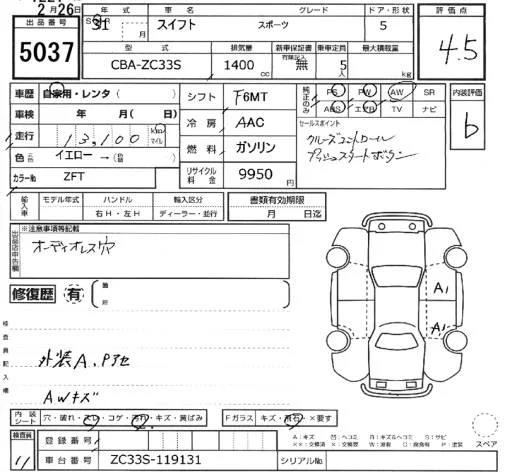 2月26日
出品番号 年式 車名 グレード ドア・形状 評価点
5037 S(H)R 31 月 スイフト スポーツ 5 4.5
型式 排気量 新車保証書 有無記入 乗車定員 最大積載量
CBA-ZC33S 1400cc 無 5人 kg
車歴 自家用・レンタ( ) シフト F6MT 純正のみ PS PW AW SR 内装評価
車検 年 月( 日) 冷房 AAC ABS エアB TV ナビ b
走行 13,100 km マイル セールスポイント
色 イエロー→ 燃料 ガソリン クルーズコントロール
カラーNo ZFT リサイクル料金 9950 プッシュスタートボタン
輸入車 モデル年式 ハンドル 輸入区分 書類有効期限
右H・左H ディーラー・並行 月 日迄
出品店申告欄 ※注意事項等記載
オーディオレス穴
修復歴 有 箇所
A1
A1
検査員記入欄
外装A、P
AWキズ
内装シート 穴・破れ・スレ・コゲ・汚れ・キズ・黄ばみ Fガラス キズ・飛石・×要す
検査員 登録番号 A:キズ U:ヘコミ B:キズ&ヘコミ S:サビ
××:交換済 ×:交換要 W:波有 C:腐食有 P:塗装 スペア
11 車台番号 ZC33S-119131 シリアルNo.